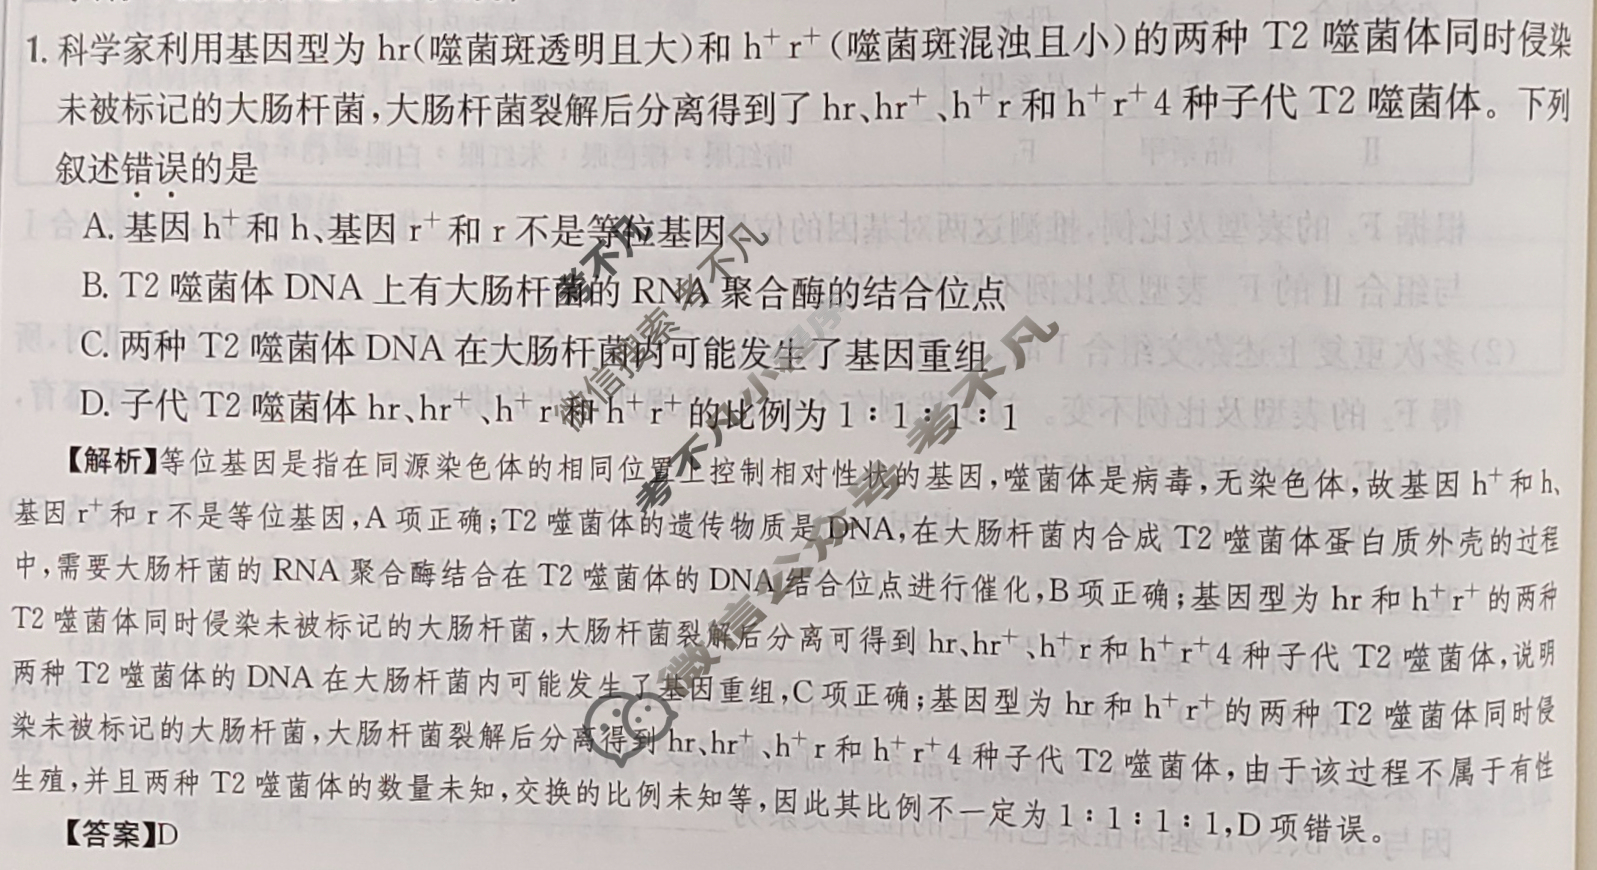 1. 科学家利用基因型为 hr(噬菌斑透明且大)和 h⁺ r⁺ (噬菌斑混浊且小)的两种 T2 噬菌体同时侵染
未被标记的大肠杆菌,大肠杆菌裂解后分离得到了 hr、hr⁺、h⁺ r 和 h⁺ r⁺ 4 种子代 T2 噬菌体。下列
叙述错误的是
A. 基因 h⁺ 和 h、基因 r⁺ 和 r 不是等位基因
B. T2 噬菌体 DNA 上有大肠杆菌的 RNA 聚合酶的结合位点
C. 两种 T2 噬菌体 DNA 在大肠杆菌内可能发生了基因重组
D. 子代 T2 噬菌体 hr、hr⁺、h⁺ r 和 h⁺ r⁺ 的比例为 1∶1∶1∶1
【解析】等位基因是指在同源染色体的相同位置上控制相对性状的基因,噬菌体是病毒,无染色体,故基因 h⁺ 和 h、
基因 r⁺ 和 r 不是等位基因,A 项正确;T2 噬菌体的遗传物质是 DNA,在大肠杆菌内合成 T2 噬菌体蛋白质外壳的过程
中,需要大肠杆菌的 RNA 聚合酶结合在 T2 噬菌体的 DNA 结合位点进行催化,B 项正确;基因型为 hr 和 h⁺ r⁺ 的两种
T2 噬菌体同时侵染未被标记的大肠杆菌,大肠杆菌裂解后分离可得到 hr、hr⁺、h⁺ r 和 h⁺ r⁺ 4 种子代 T2 噬菌体,说明
两种 T2 噬菌体的 DNA 在大肠杆菌内可能发生了基因重组,C 项正确;基因型为 hr 和 h⁺ r⁺ 的两种 T2 噬菌体同时侵
染未被标记的大肠杆菌,大肠杆菌裂解后分离得到 hr、hr⁺、h⁺ r 和 h⁺ r⁺ 4 种子代 T2 噬菌体,由于该过程不属于有性
生殖,并且两种 T2 噬菌体的数量未知,交换的比例未知等,因此其比例不一定为 1∶1∶1∶1,D 项错误。
【答案】D
考不凡
微信搜索 考不凡
考不凡小程序
微信公众号 考不凡